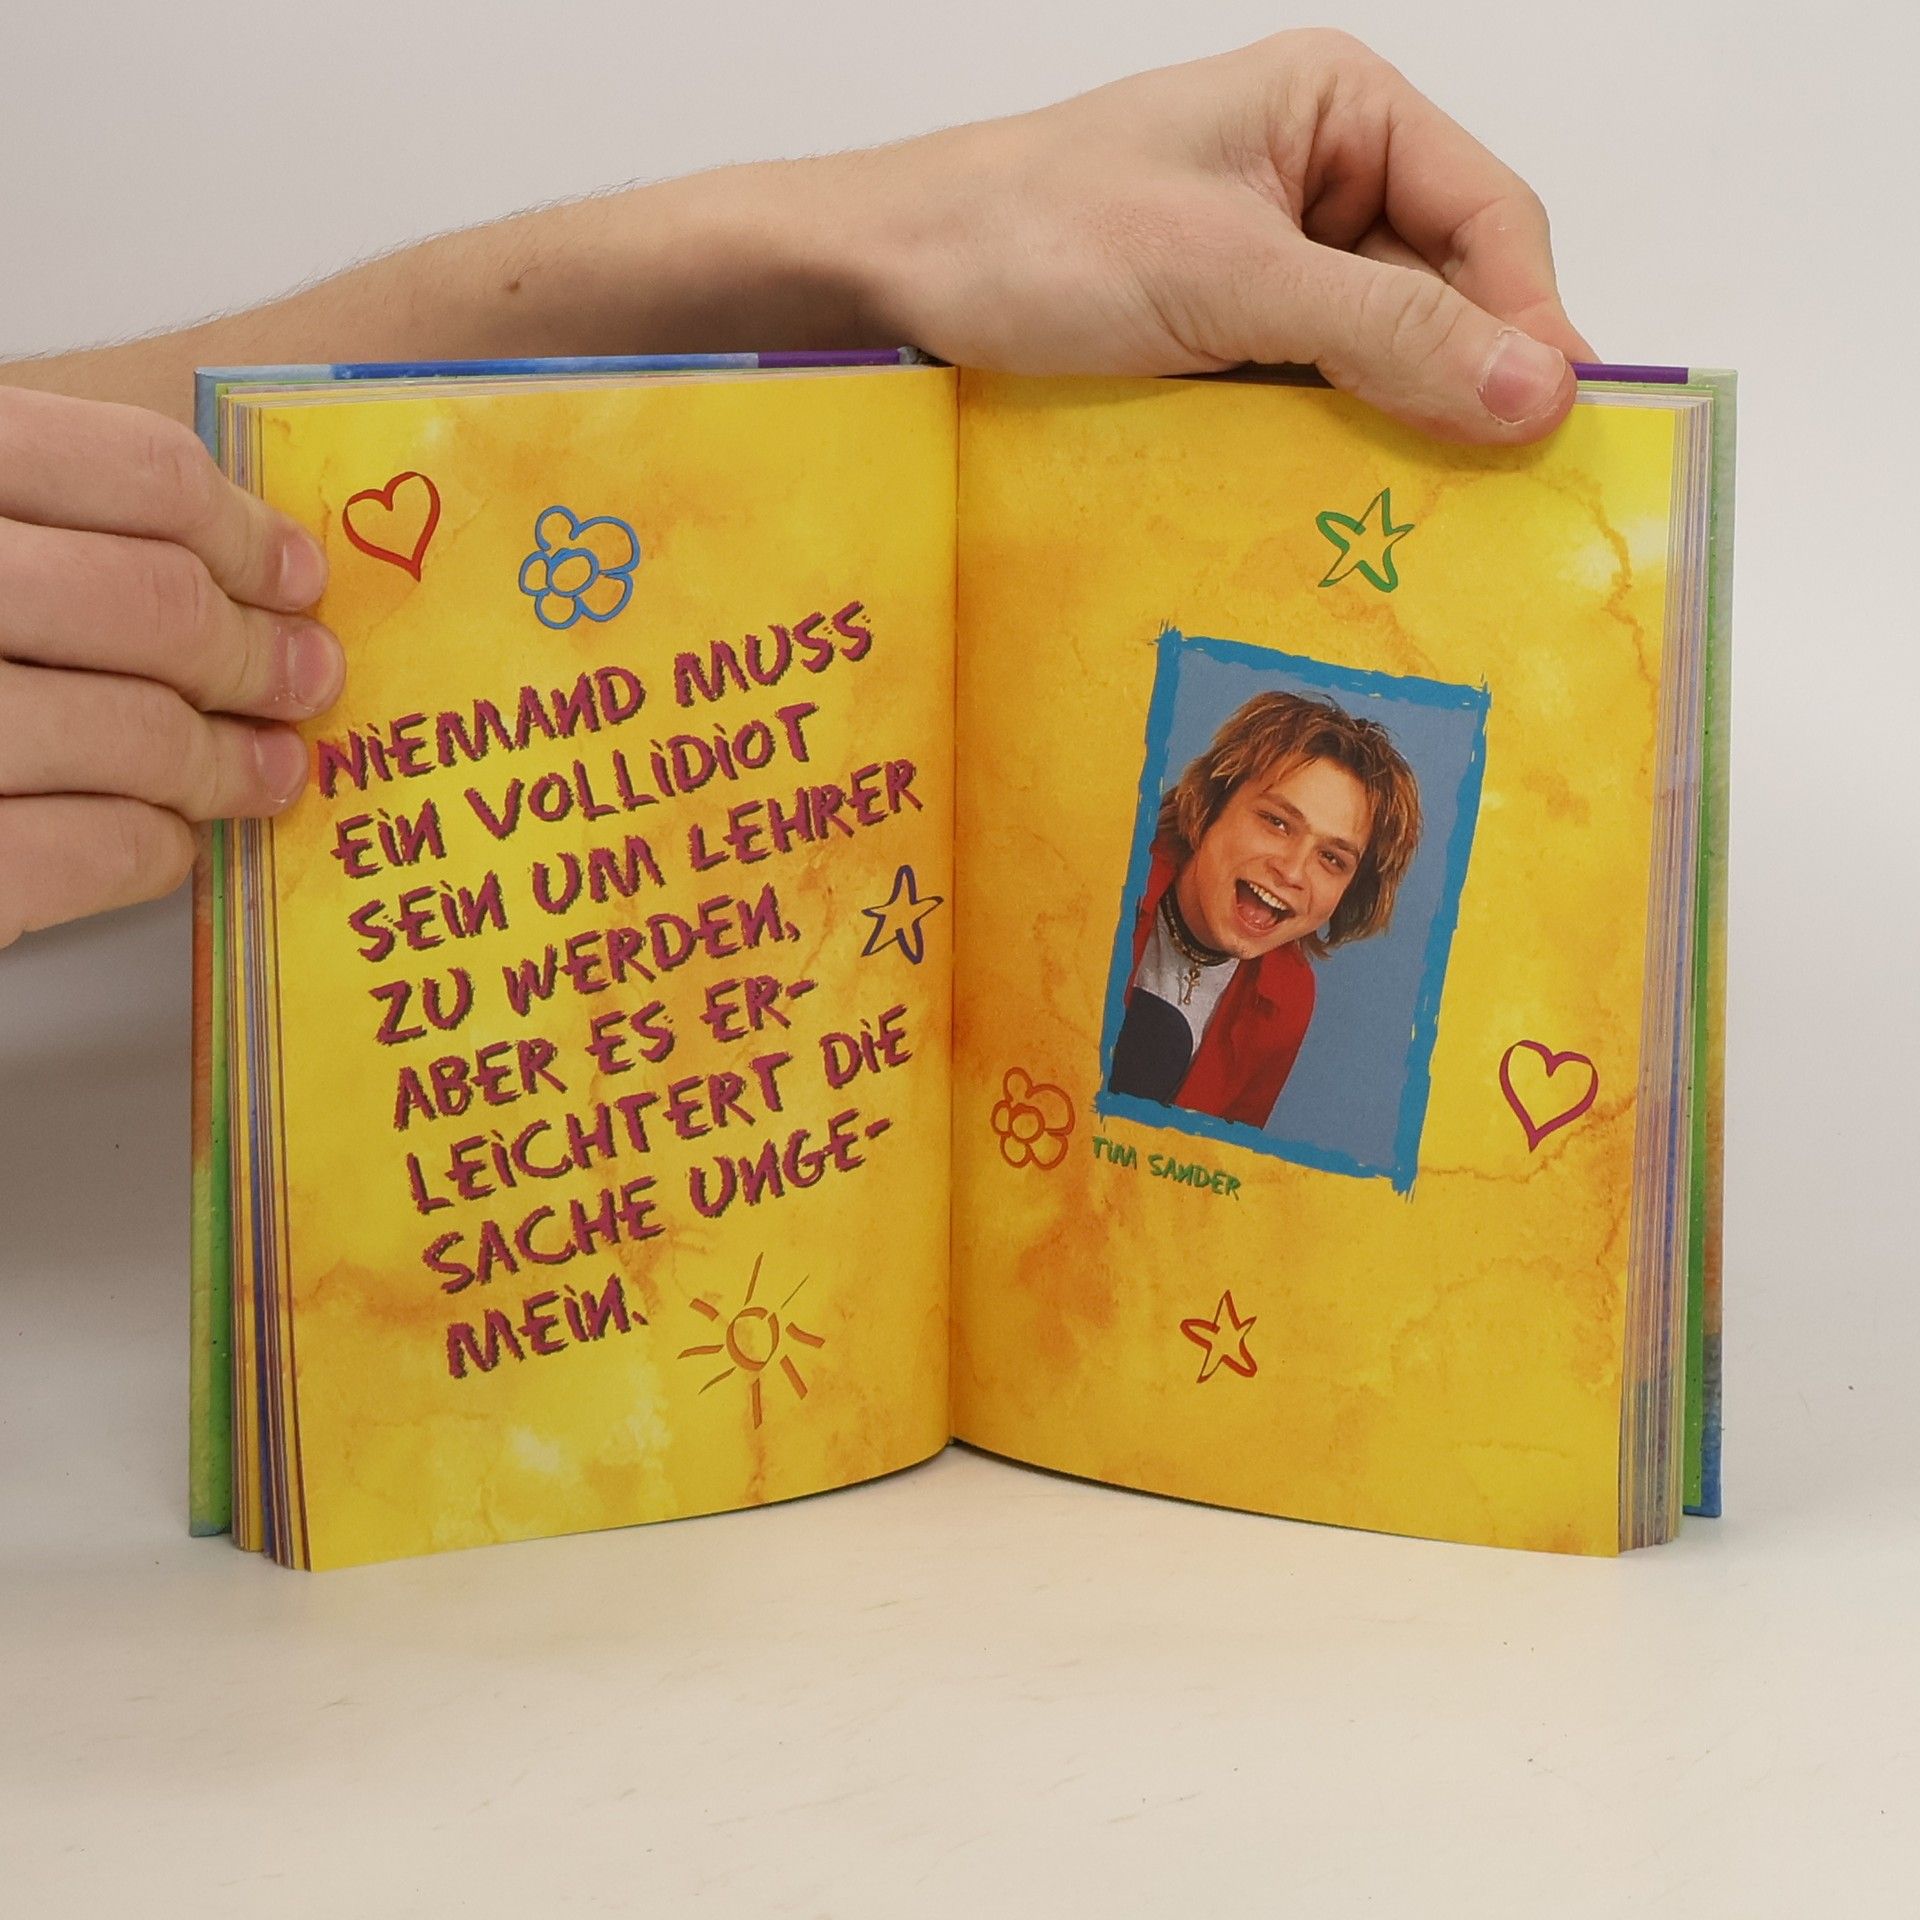 NIEMAND MUSS
EIN VOLLIDIOT
SEIN UM LEHRER
ZU WERDEN,
ABER ES ER-
LEICHTERT DIE
SACHE UNGE-
MEIN.
TIM SANDER